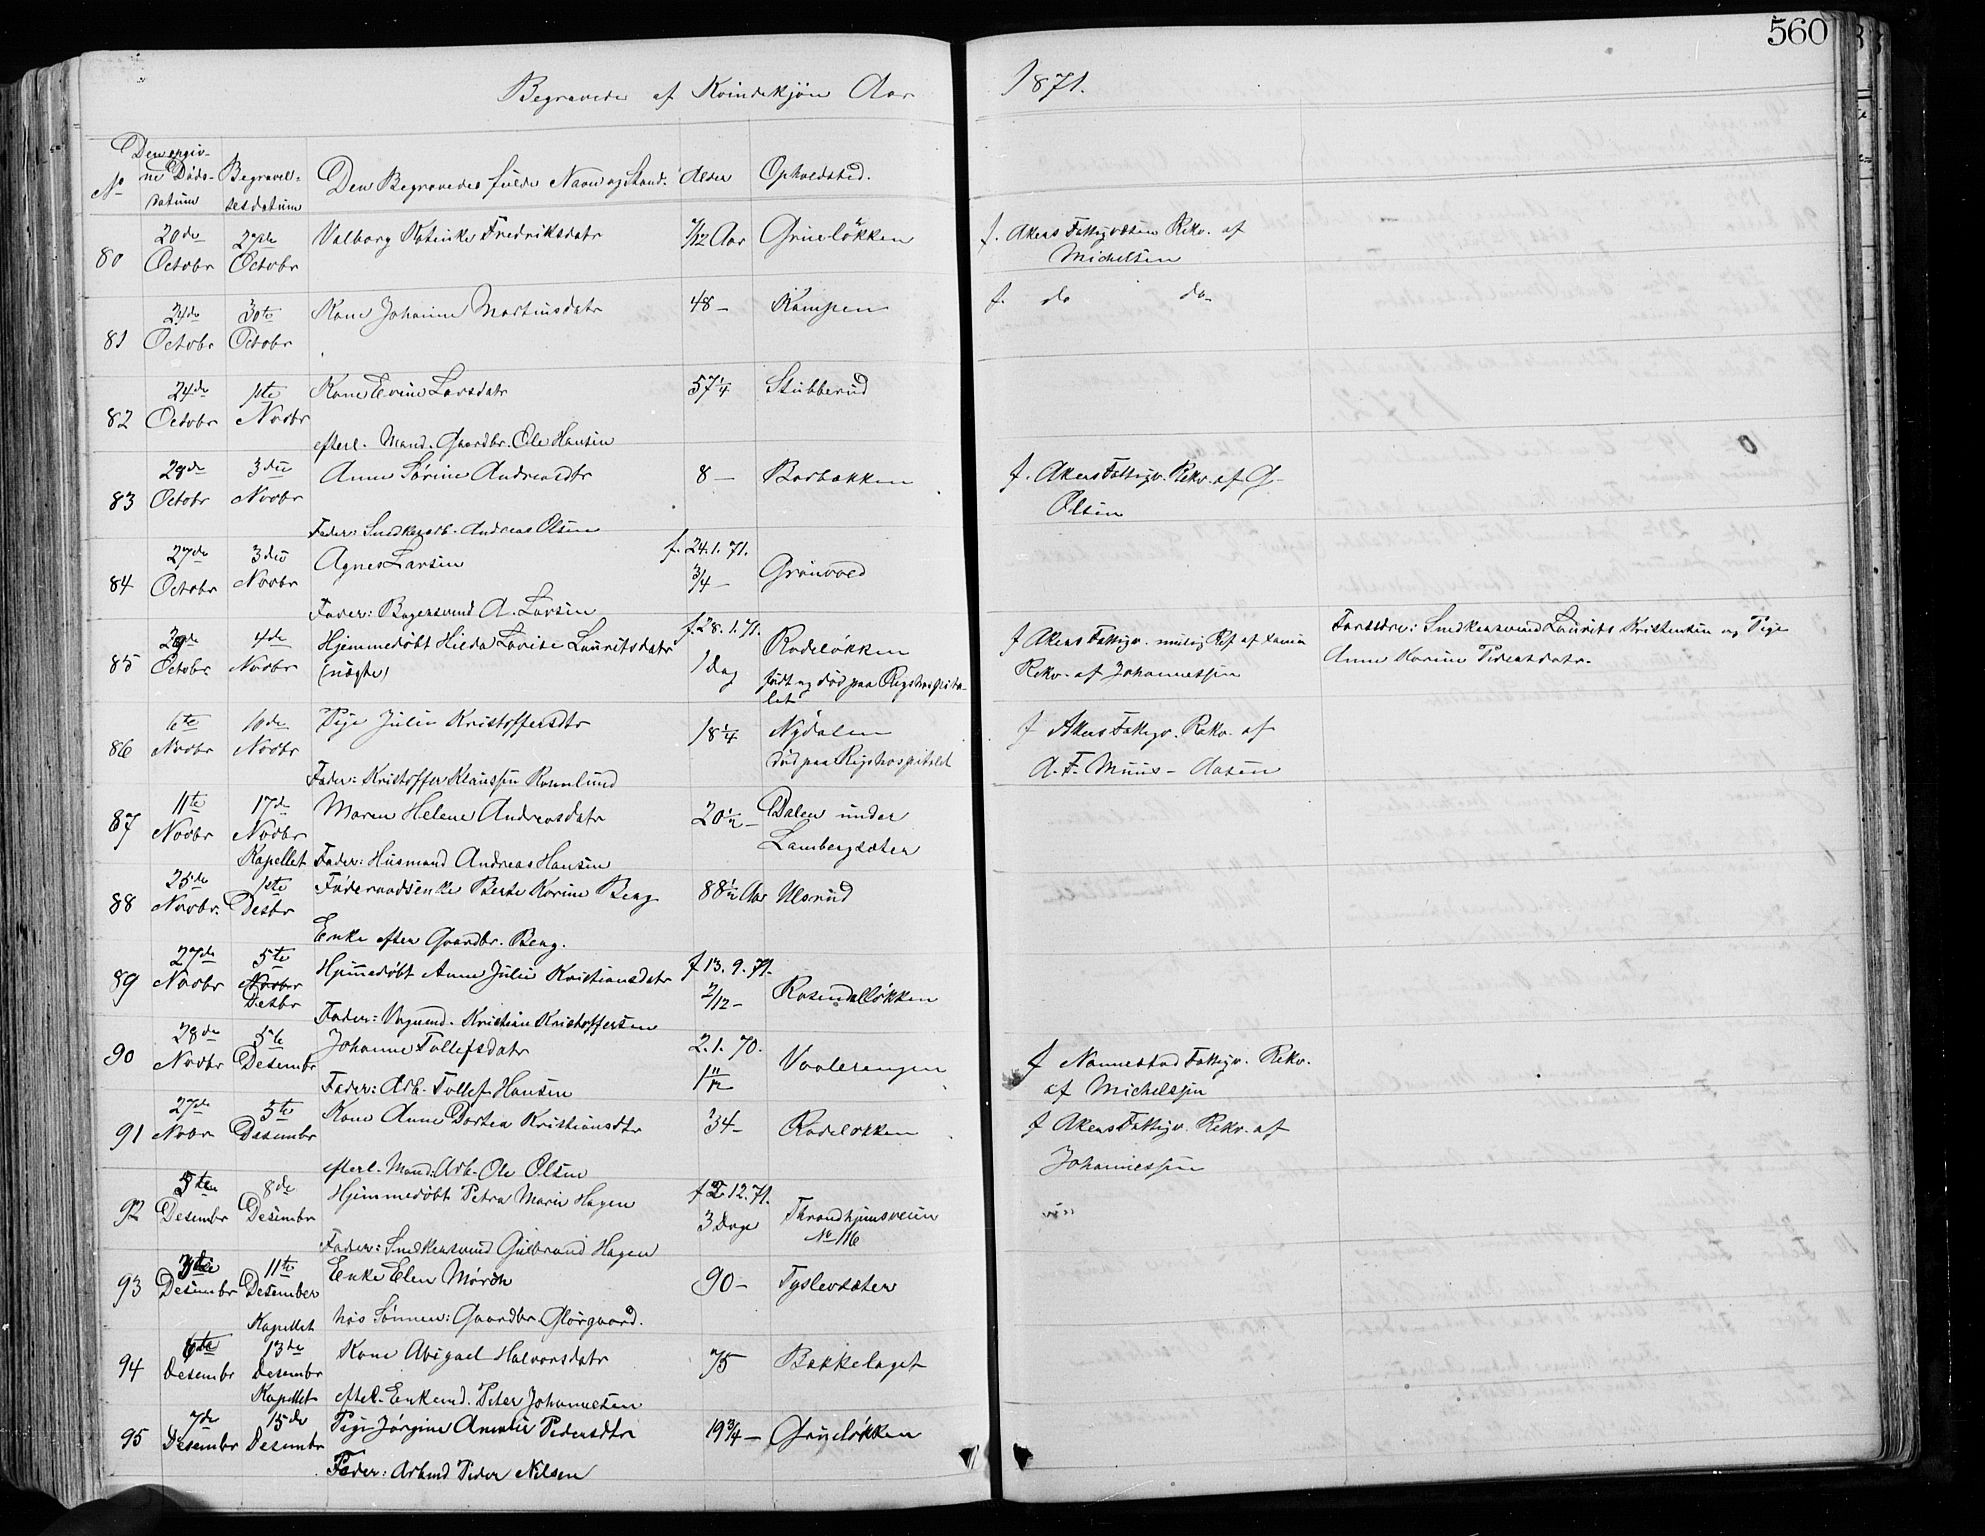 560
Begravede af Kvindekjön Aar 1871.
No
Den opgivne Döds-datum
Begravelsesdatum
Den Begravedes fulde Navn og Stand.
Alder
Opholdsted.
80 20de Octobr 27de Octobr Valborg Fredriksdatr 7/12 Aar Grüneløkken f. Akers Fattigvæsen Rekv. af
Michelsen
81 Octobr 30te Octobr Kone Johanne Martinsdatr 48 – Kampen f. do do–
82 24de Octobr 1ste Novbr Kone Larsdatr 57 1/4 Stubberud
efterl. Mand. Gaardbr. Ole Hansen
83 29de Octobr 3die Novbr Anne Sörine Andreasdtr 8 – Barbakken f. Akers Fattigv. Rekv. af G.
Olsen
Fader: Snedkerarb. Andreas Olsen
84 27de Octobr 3die Novbr Agnes Larsen f. 24.1.71. 3/4 – Grönvold
Fader: Bagersvend A. Larsen
85 29de Octobr 4de Novbr Hjemmedøbt Hilda Lovise Lauritsdatr f. 28.1.71. Rodeløkken
(uægte) 1 Dag født og død paa Rigshospitalet
f Akers Fattigv. Ref af
Rekv. af Johannessen
Forældre: Snedkersvend Laurits Kristensen og Pige
Anne Karine Pedersdatr.
86 6te Novbr 10de Novbr Pige Julie Kristoffersdtr 18 1/4 Nydalen
død paa Rigshospitalet
f Akers Fattigv. Rekv. af
A. F. Muus – Aasen
Fader: Kristoffer Klaussen
87 11te Novbr 17de Novbr Kapellet Maren Helene Andreasdatr 20 1/2 – Dalen under
Lambergsæter
Fader: Husmand Andreas Hansen
88 25de Novbr. 1ste Desbr Føderaadsenke Berte Karine Berg 88 1/2 Aar Ulsrud
Enke efter Gaardbr. Berg.
89 27de Novbr 5te Novbr Desbr Hjemmedøbt Anne Julie Kristiansdatr f 13.9.71. 2/12 – Rosendalløkken
Fader: Kristian Kristoffersen
90 28de Novbr 5te Desembr Johanne Tollefsdatr 2.1.70. 1 11/12 Vaalerengen
f Nannestad Fattigv. Rekv.
af Michelssen
Fader: Arb. Tollef Hansen
91 27de Nobr 5te Desembr Kone Anne Dortea Kristiansdtr 34 – Rodeløkken f Akers Fattigv. Rekv. af
Johannessen
efterl. Mand: Arb. Ole Olsen
92 5te Desembr 8de Desembr Hjemmedøbt Petra Marie Hagen f 2.12.71. 3 Dage Throndhjemsveien
No 116
Fader: Snedkersvend Gulbrand Hagen
93 Desembr 11te Desember Kapellet Enke Elen Mörch 90 – Tyslevsæter
hos Sønnen: Gaardbr. Glörgaard.
94 6te Desembr 13de Desembr Kapellet Kone Abigael Halvorsdatr 75 Bækkelaget
efterl. Enkemd. Peter Johannesen
95 7de Desembr 15de Desembr Pige Jörgine Amalie Pedersdtr 19 3/4 – Grüneløkken
Fader: Arbmd Peder Nilsen